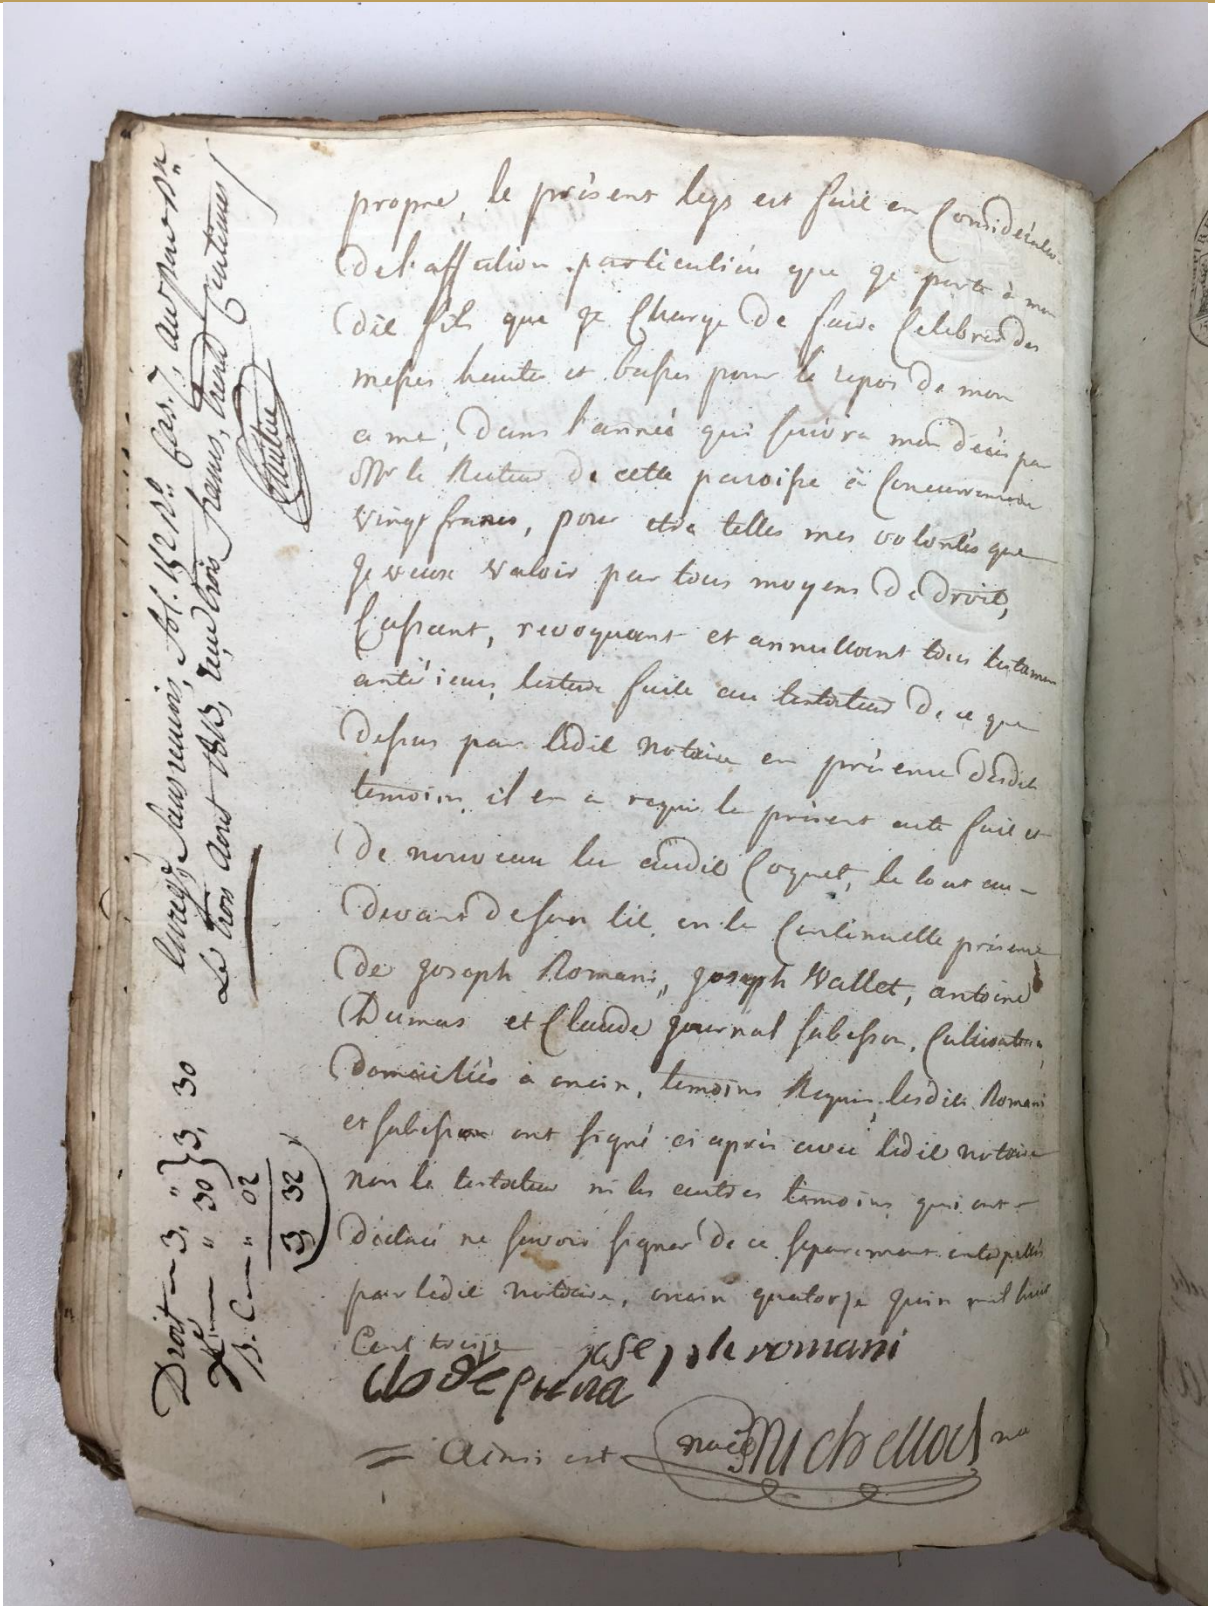 propre, le présent legs est fait en Consideration
De l'affection particuliere que je porte à mon
Dit fils que je Charge De faire Celebrer Des
messes hautes et basses pour le repos De mon
ame, Dans l'année qui suivra mon décès par
Mr le Recteur De cette paroisse à Concurrence de
vingt francs, pour etre telles mes volontés que
je veux valoir par tous moyens De Droit,
Cassant, revoquant et annullant tous testamens
antérieurs, lecture faite au testateur De ce que
Dessus par ledit Notaire en présence Desdits
temoins, il en a requis le présent acte fait et
De nouveau lu audit Coquet, le tout au-
Devant De son lit, en la Continuelle présence
De joseph Romani, joseph Vallet, antoine
Dumas et Claude journal sabesson, Cultivateurs,
Domiciliés à oncin, temoins Requis, lesdits Romani
et sabesson ont signé ci après avec ledit notaire
non le testateur ni les autres temoins qui ont
Déclaré ne savoir signer De ce separement interpellés
par ledit notaire, oncin quatorze juin mil huit
Cent treize
josephe romani
= Ainsi est Michellod no
Enregé. sans renvoi, fol. 152 Ro.
Le trois aout 1813,
Droit — 3, "
" 30 } 3, 30
" 02
3 32